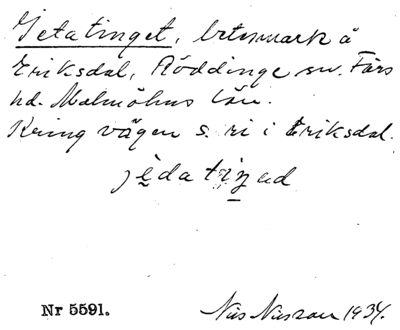 Getatinget, betesmark å
Eriksdal, Röddinge sn. Färs
hd. Malmöhus län.
Kring vägen s. ri i Eriksdal.
jèdatiŋəd
Nr 5591.
Nils Nilsson 1934.